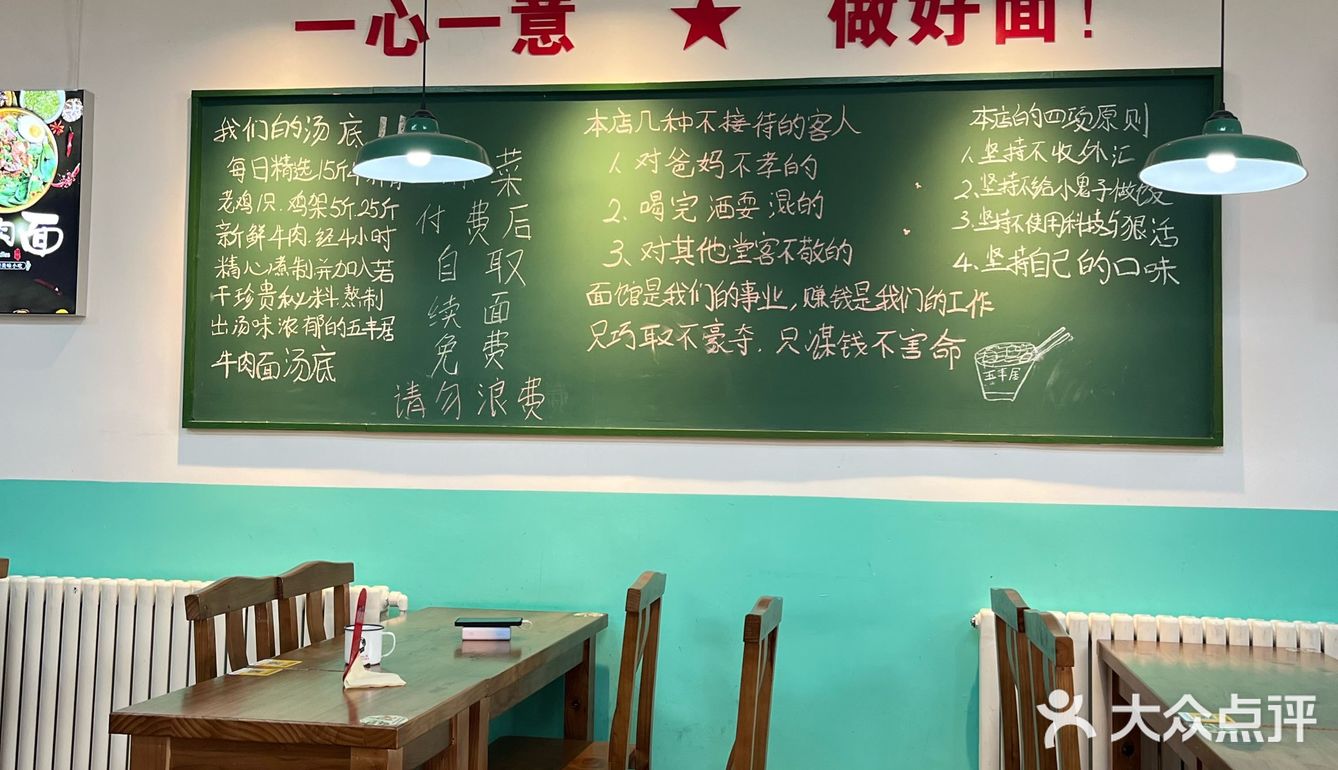 一心一意 ★ 做好面!
面
我们的汤底
每日精选15斤
老鸡1只.鸡架5斤.25斤
新鲜牛肉.经4小时
精心煮制并加入若
干珍贵秘料.熬制
出汤味浓郁的五丰居
牛肉面汤底
菜
付费后
自取
续面
免费
请勿浪费
本店几种不接待的客人
1. 对爸妈不孝的
2. 喝完酒耍混的
3. 对其他堂客不敬的
面馆是我们的事业,赚钱是我们的工作
只巧取不豪夺.只谋钱不害命
本店的四项原则
1.坚持不收外汇
2.坚持不给小鬼子做饭
3.坚持不使用科技与狠活
4.坚持自己的口味
五丰居
大众点评